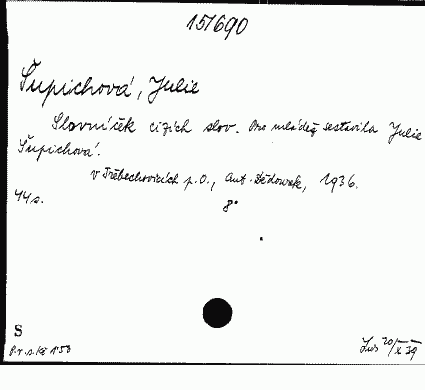 151690
Šupichová, Julie
Slovníček cizích slov. Pro mládež sestavila Julie
Šupichová.
v Třebechovicích p.O., Ant. Dědourek, 1936.
44 s. 8°
S